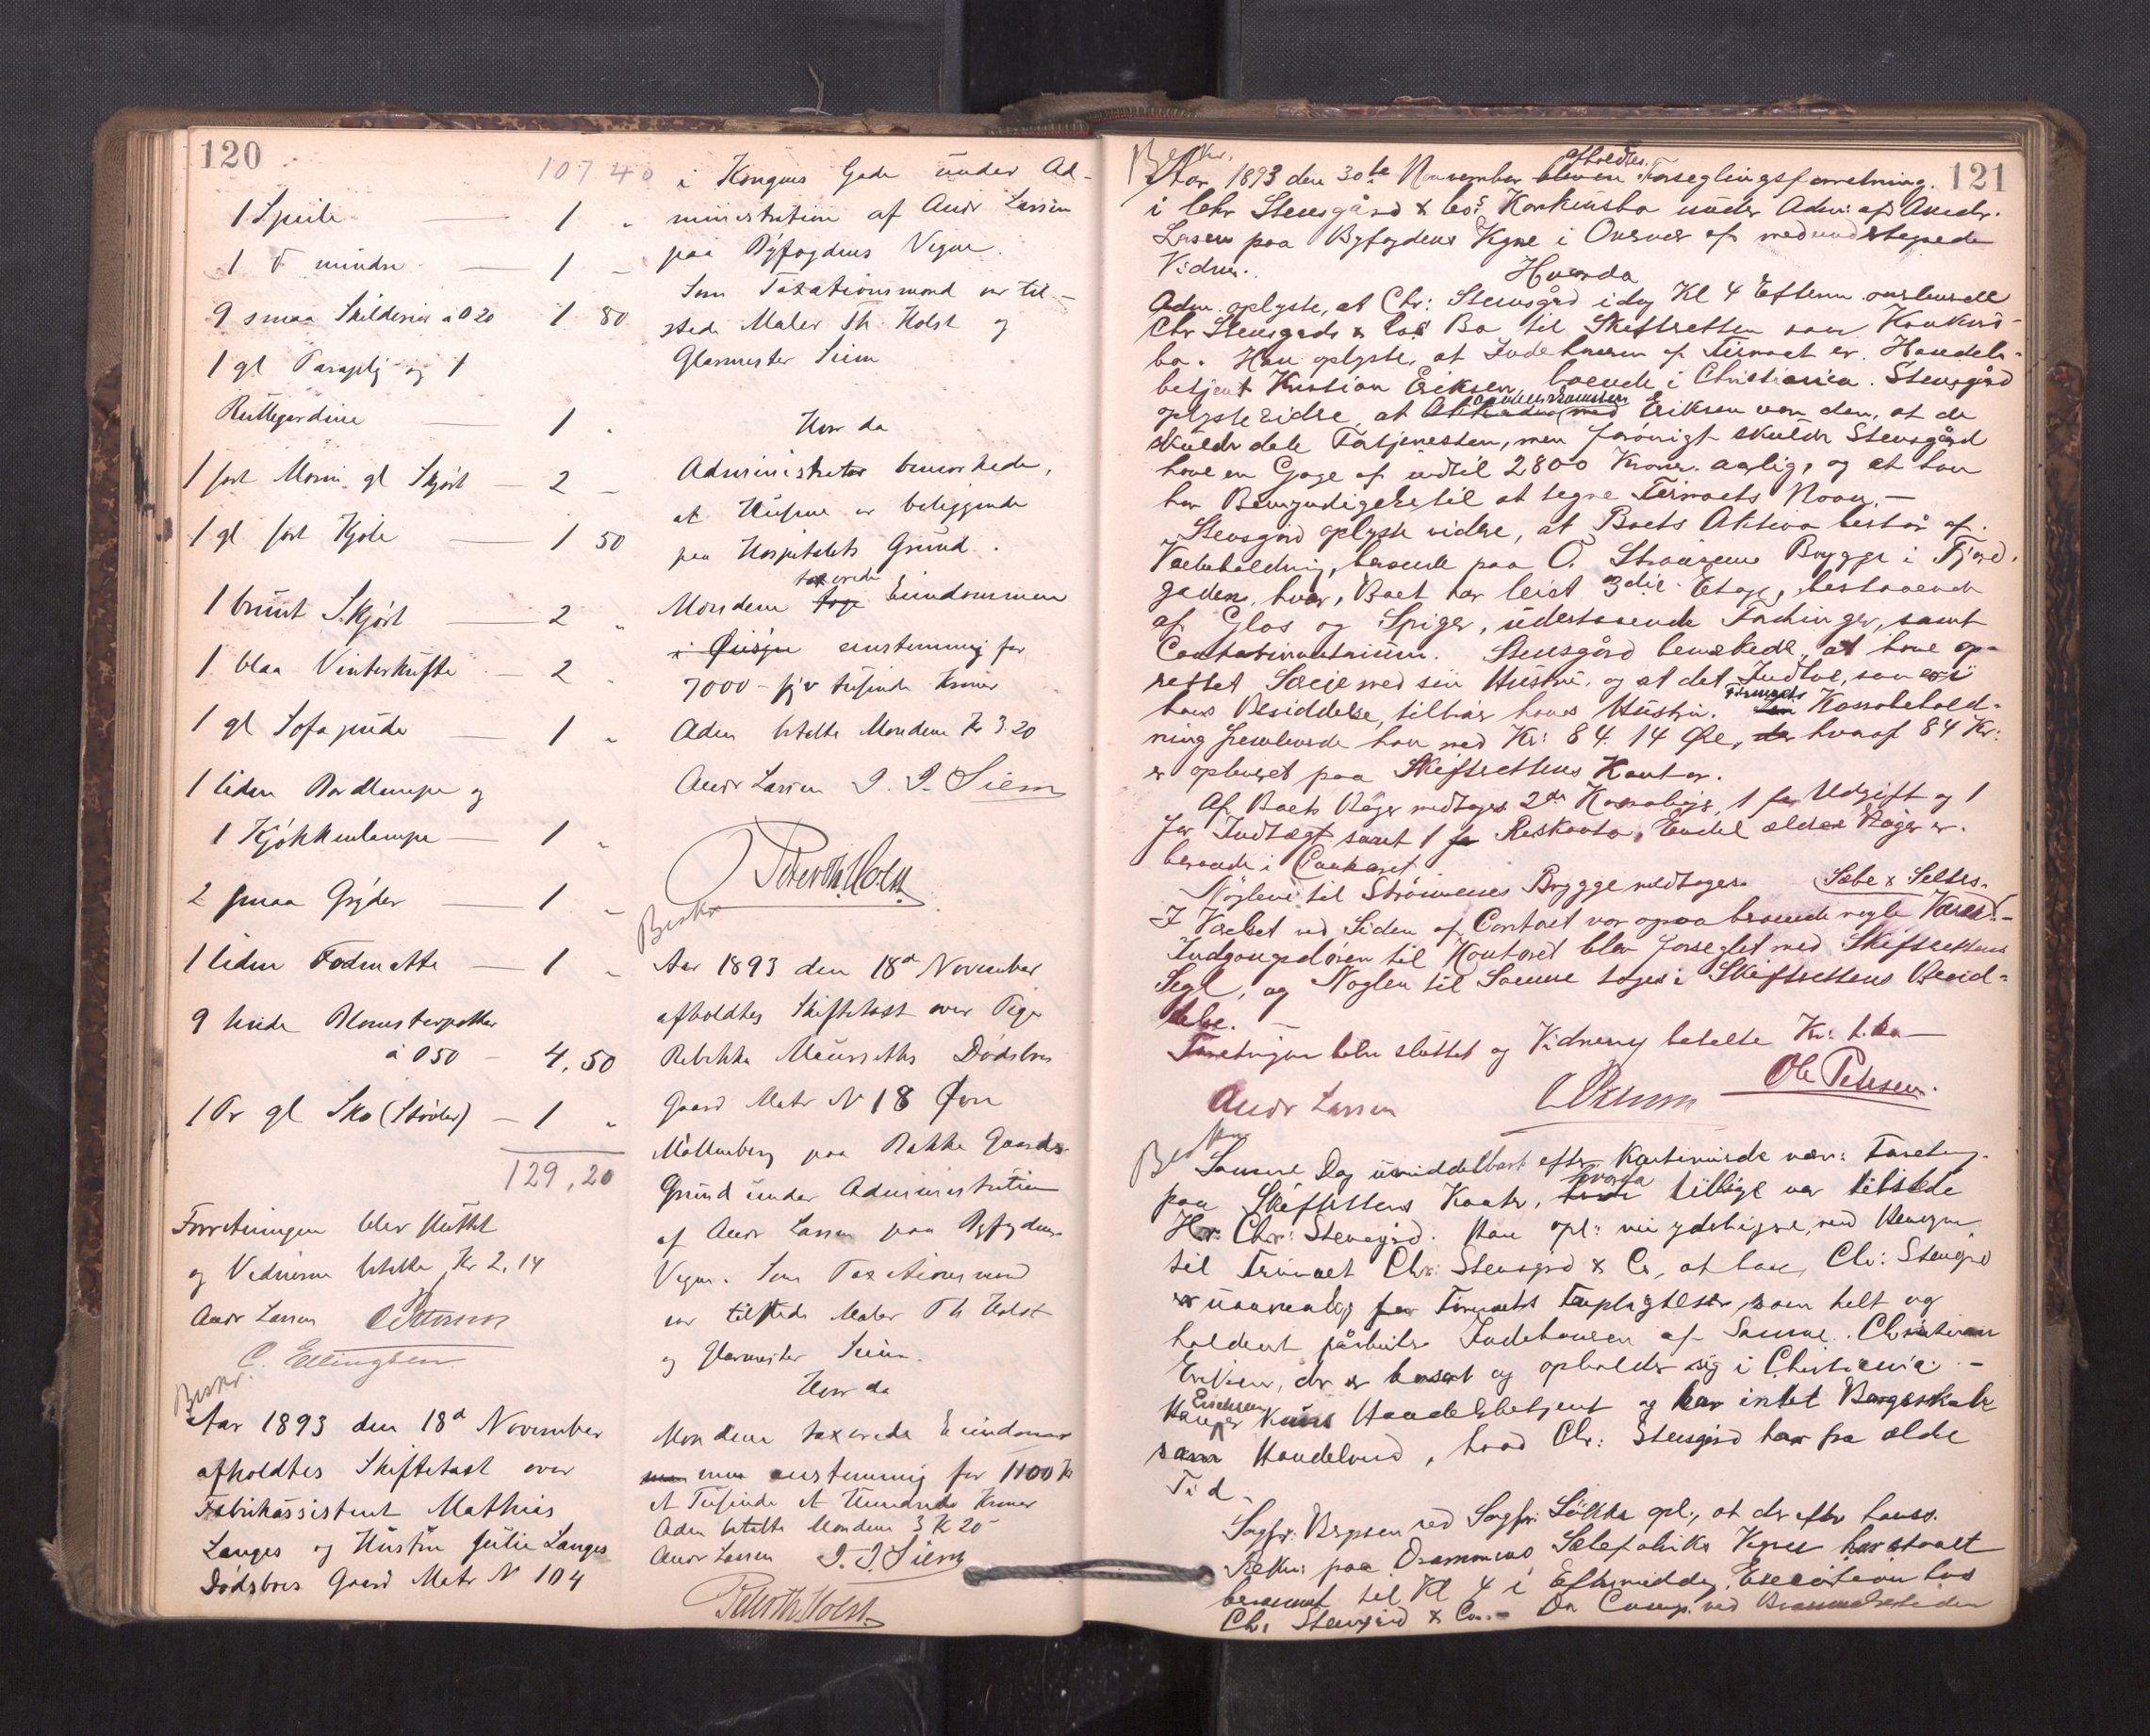 120
107 40
1 Speile 1 "
1 do mindre 1 –
9 smaa Skilderier à 020 1 80
1 gl Paraply og 1
Rullegardine 1 "
1 sort Morin gl Skjørt – 2 –
1 gl sort Kjole 1 50
1 brunt Skjørt 2 "
1 blaa Vinterkufte 2 "
1 gl Sofapude 1 "
1 liden Bordlampe og
1 Kjøkkenlampe – 1 "
2 smaa Gryder 1 –
1 liden Fodmatte – 1 "
9 hvide Blomsterpotter
à 050 – 4,50
1 Pr gl Sko (Støvler) – 1 "
129,20
Forretningen blev sluttet
og Vidnerne betalte Kr 2,14
Andr Larsen OPettersen
C. Ellingsen
Beskr.
Aar 1893 den 18d November
afholdtes Skiftetaxt over
Fabrikassistent Mathias
Langes og Hustru Julie Langes
Dødsbos Gaard Matr N 104
i Kongens Gade under Ad-
ministration af Andr Larsen
paa Byfogdens Vegne.
Som Taxationsmænd var til-
stede Maler Th. Holst og
Glarmester Siem
Hvor da
Administrator bemærkede,
at Husene er beliggende
paa Hospitalets Grund.
taxerede
Mændene Eiendommen
enstemmig for
7000 – syv tusinde Kroner
Adm betalte Mændene Kr 3.20
Andr Larsen J. J. Siem
Peter Th. Holst.
Beskr
Aar 1893 den 18d November
afholdtes Skiftetaxt over Pige
Rebekka Dødsbos
Gaard Matr N 18 Øvre
Møllenberg paa Bakke Gaards
Grund under Administration
af Andr Larsen paa Byfogdens
Vegne. Som Taxationsmænd
var tilstede Maler Th Holst
og Glarmester Siem.
Hvor da
Mændene taxerede Eiendom
men enstemmig for 1100 Kr
et Tusinde et Hundrede Kroner
Adm betalte Mændene 3 Kr 20
Andr Larsen J. J. Siem
Peter Th Holst.
121
Beskr.
afholdtes
Aar 1893 den 30te November bleven Forseglingsforretning.
i Chr Stensgård & Cos Konkursbo under Adm: af Andr.
Larsen paa Byfogdens Vegne i Overvær af medundertegnede
Vidner.
Hvorda
Adm. oplyste, at Chr: Stensgård idag Kl 4 Efterm overleverede
Chr Stensgards & Cos Bo til Skifteretten som Konkurs-
bo. Han oplyste, at Indehaveren af Firmaet er Handels-
betjent Kristian Eriksen, boende i Christiania. Stensgård
oplyste vidre, at med Eriksen var den, at de
skulde dele Fortjenesten, men forøvrigt skulde Stensgård
have en Gage af indtil 2800 Kroner aarlig, og at han
har Bemyndigelse til at tegne Firmaets Navn. –
Stensgård oplyste vidre, at Boets Aktiva består af
Varebeholdning, beroende paa O. Strømmens Brygge i Fjord-
gaden, hvor Boet har leiet 3die Etage, bestaaende
af Glas og Spiger, udestaaende Fordringer, samt
Contorinventarium. Stensgård bemerkede, at have op-
rettet Særeje med sin Hustru, og at det Indbo, som er i
Firmaets
hans Besiddelse, tilhører hans Hustru. Kassabehold-
ning fremleverede han med Kr: 84. 14 Øre, hvoraf 84 Kr:
er opbevaret paa Skifterettens Kontor.
Af Boets Bøger medtages 2de Kassabøger, 1 for Udgift og 1
for Indtægt samt 1 Reskontro. Endel ældre Bøger er
beroende i Contoret.
Nøglene til Strømmens Brygge medtoges. Sæbe & Selters-
I Værelset ved Siden af Contoret var ogsaa beroende nogle Varer. –
Indgangsdøren til Kontoret blev forseglet med Skifterettens
Segl, og Nøglen til Samme toges i Skifterettens Besid-
delse. –
Forretningen blev sluttet og Vidnerne betalte Kr:
Andr Larsen OPettersen Ole Petersen.
Beskr
Samme Dag umiddelbart efter Kontinuerede nærv: Forretng.
hvorda
paa Skifterettens Kontor, tillige var tilstede
Hr. Chr: Stensgård. Han opl: yderligere, med Hensyn
til Firmaet Chr: Stensgård & Co, at han, Chr: Stensgård
er uansvarlig for Firmaets Forpligtelser, som helt og
holdent påhviler Indehaveren af Samme. Christian
Eriksen, der er bosat og opholder sig i Christiania. –
Erichsen
Han er kuns Handelsbetjent og har intet Borgerskab
som Handelsmd, hvad Chr: Stensgård har fra ældre
Tid
Sagfør. ved Sagfør. Løkke opl., at der efter hans
Rekv: paa Drammens Vegne har staaet
berammet til Kl 4 i Eftermiddag, Execution hos
Chr Stensgård & Co. – Da Comp. ved